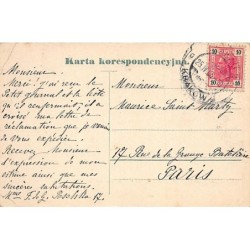 Karta korespondencyjna
Monsieur,
Merci! j'ai reçu le
Petit journal et la liste
qu'il renfermait; il a
croisé ma lettre de
réclamation que je viens
de vous expédier.
Recevez Monsieur
l'expression de mon
estime ainsi que mes
sincères salutations.
Mme F.
17.
Monsieur
Maurice Saint
17 Rue de la Grange Batelière
Paris
10 10
10 10